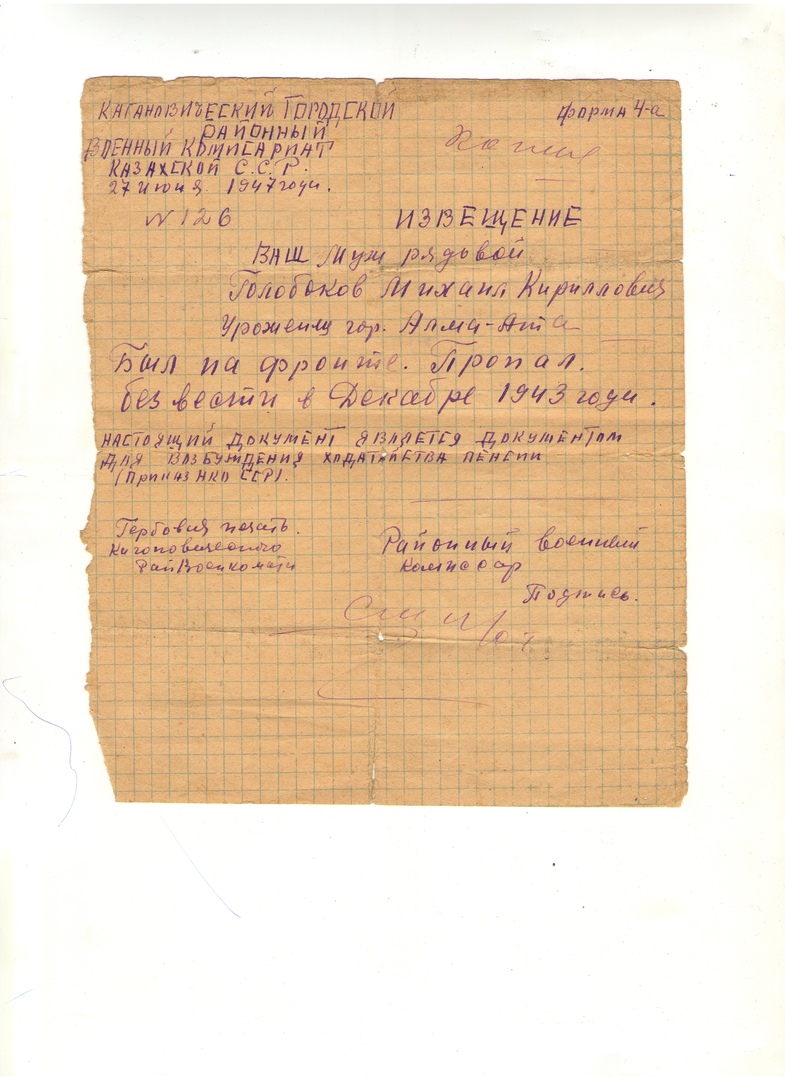 КАГАНОВИЧЕСКИЙ ГОРОДСКОЙ
РАЙОННЫЙ
ВОЕННЫЙ КОМИСАРИАТ
КАЗАХСКОЙ С.С.Р.
27 июня 1947 годи.
Форма 4-а
Копия
N 126
ИЗВЕЩЕНИЕ
ВАШ Муж рядовой
Голобоков Михаил Кириллович
Уроженец гор. Алма-Ата
Был на фронте. Пропал.
без вести в Декабре 1943 годи.
НАСТОЯЩИЙ ДОКУМЕНТ ЯВЛЯЕТСЯ ДОКУМЕНТОМ
ДЛЯ ВОЗБУЖДЕНИЯ ХОДАТАЙСТВА ПЕНСИИ
(ПРИКАЗ НКО СССР).
Гербовия печать.
Кагоновического
РайВоенкомати
Районный военный
комиссар
Подпись.